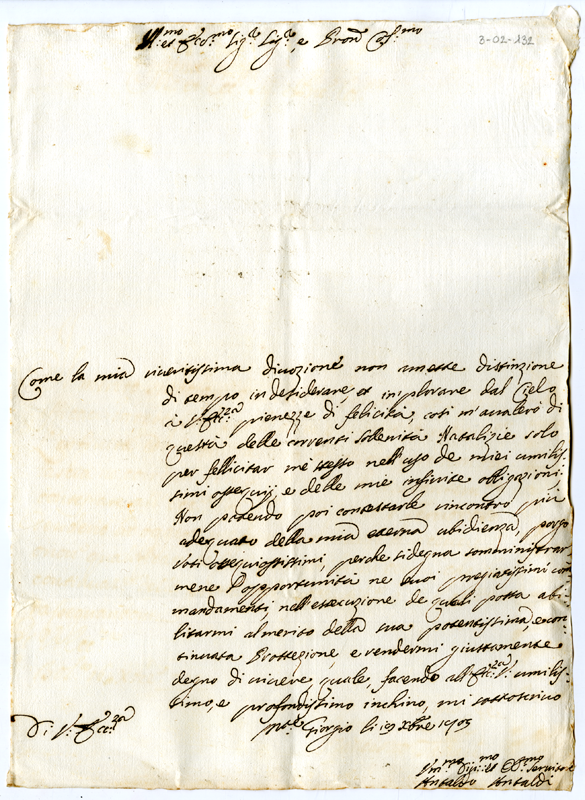 Ill.mo et Ecc.mo Sig.re Sig.re, e Pron Col.mo
3-02-132
Come la mia riverentissima divozione non mette distinzione
di tempo in desiderare, et implorare dal Cielo
à V. Ecc.za pienezze di felicità, così m'avalerò di
questa delle correnti sollenità Natalizie solo
per fellicitar me stesso nell'uso de miei umilis-
simi ossequij, e delle mie infinite obligazioni.
Non potendo poi contestarle rincontro più
adequato della mia eterna ubidienza, porgo
voti ossequiosissimi, perche si degna somministrar
mene l'opportunità ne suoi pregiatissimi com
mandamenti, nell'esecuzione de quali possa abi-
litarmi al merito della sua potentissima, e con-
tinuata Protezzione, e rendermi giustamente
degno di vivere quale, facendo all'Ecc.za V. umilis-
simo, e profondissimo inchino, mi sottoscrivo
Di V. Ecc.za
Giorgio li 19 Xbre 1709
Um.mo Div.mo et Obl.mo Servitore
Antaldo Antaldi